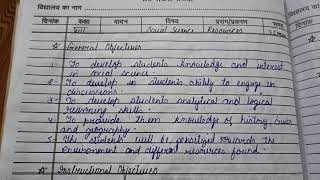 विद्यालय का नाम
दिनांक कक्षा वादन विषय प्रसंग/प्रकरण समय
VIII Social Science Resources
General Objectives
1. To develop students knowledge and interest
in social science.
2. To develop in students ability to engage in
discussions.
3. To develop students analytical and logical
reasoning skills.
4. To provide them knowledge of history, civics
and geography.
5. The students will be sensitized towards the
environment and different resources found.
Instructional Objectives